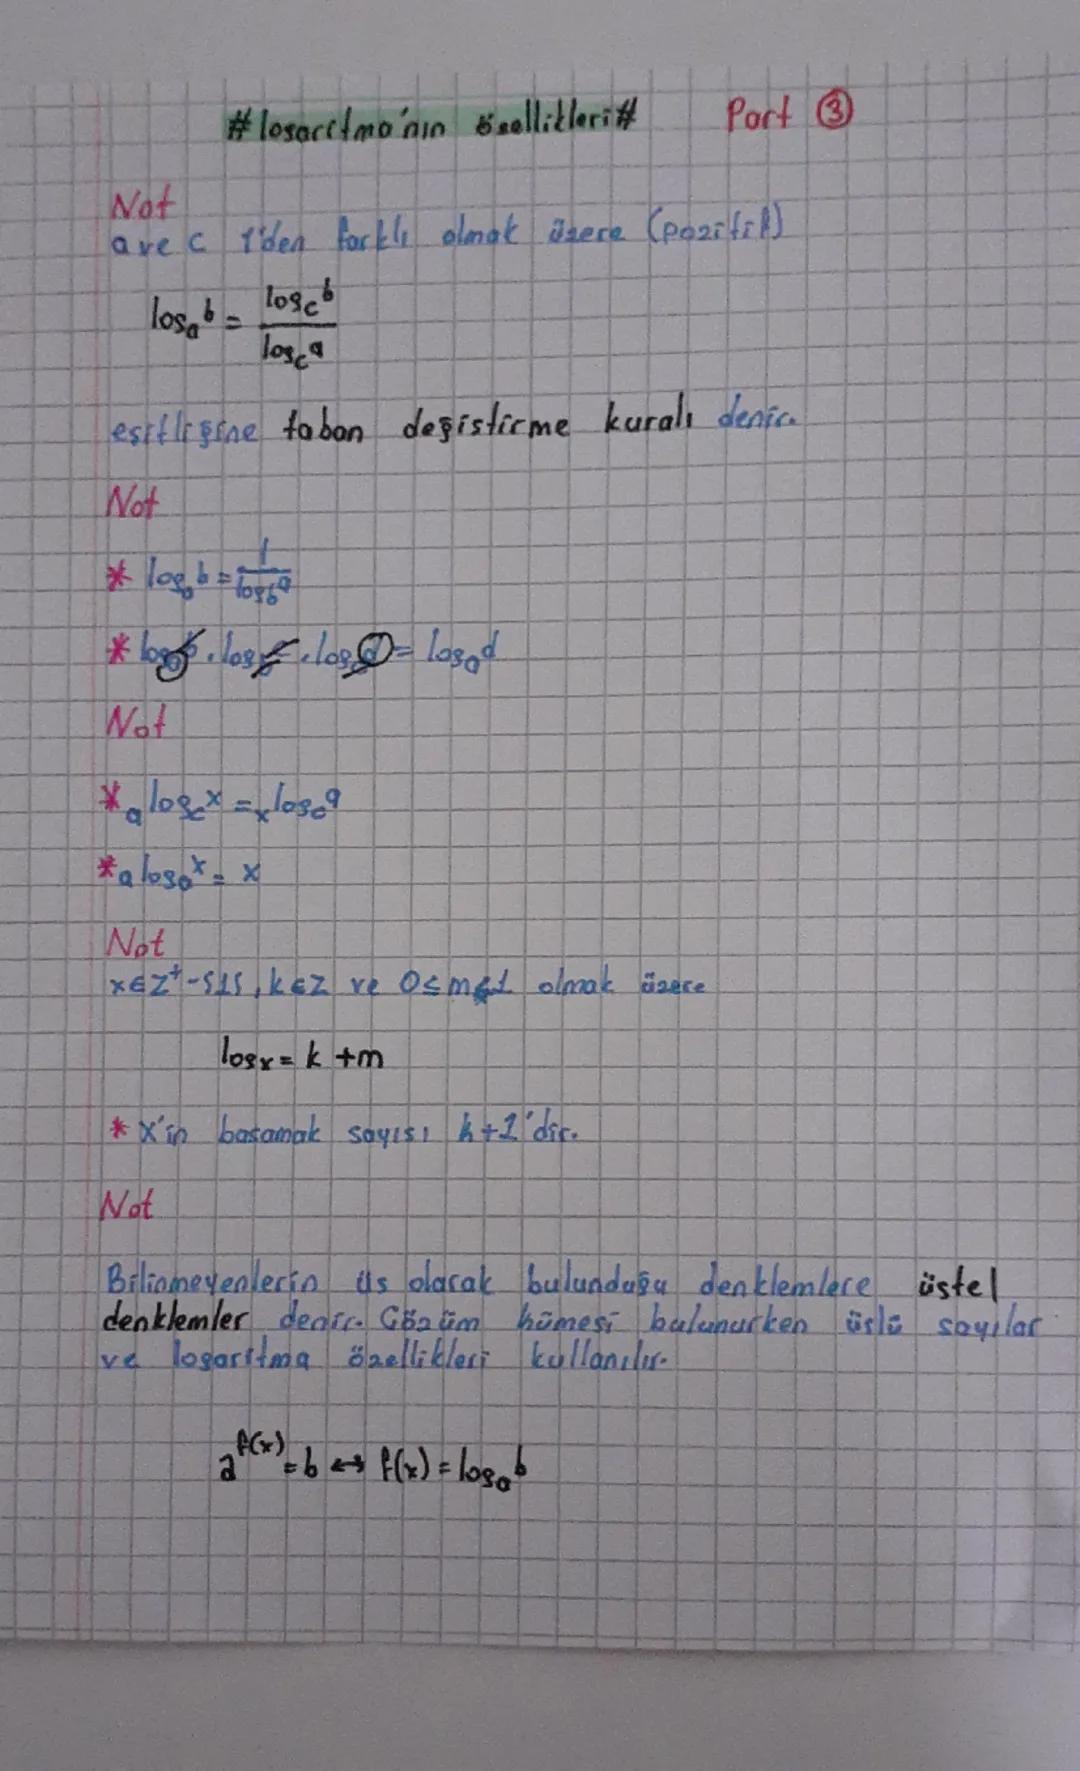 #logaritma'nın özellikleri# Part ③
Not
a ve c 1'den farklı olmak üzere (pozitif)
logₐb = log_c b / log_c a
eşitliğine taban değiştirme kuralı denir.
Not
* logₐb = 1 / log_b a
* logₐb . log_b c . log_c d = logₐd
Not
* a^(log_c x) = x^(log_c a)
* a^(logₐx) = x
Not
x∈Z⁺-{1}, k∈Z ve 0≤m<1 olmak üzere
logx = k + m
* x'in basamak sayısı k+1'dir.
Not
Bilinmeyenlerin üs olarak bulunduğu denklemlere üstel
denklemler denir. Çözüm kümesi bulunurken üslü sayılar
ve logaritma özellikleri kullanılır.
a^f(x) = b ↔ f(x) = logₐb